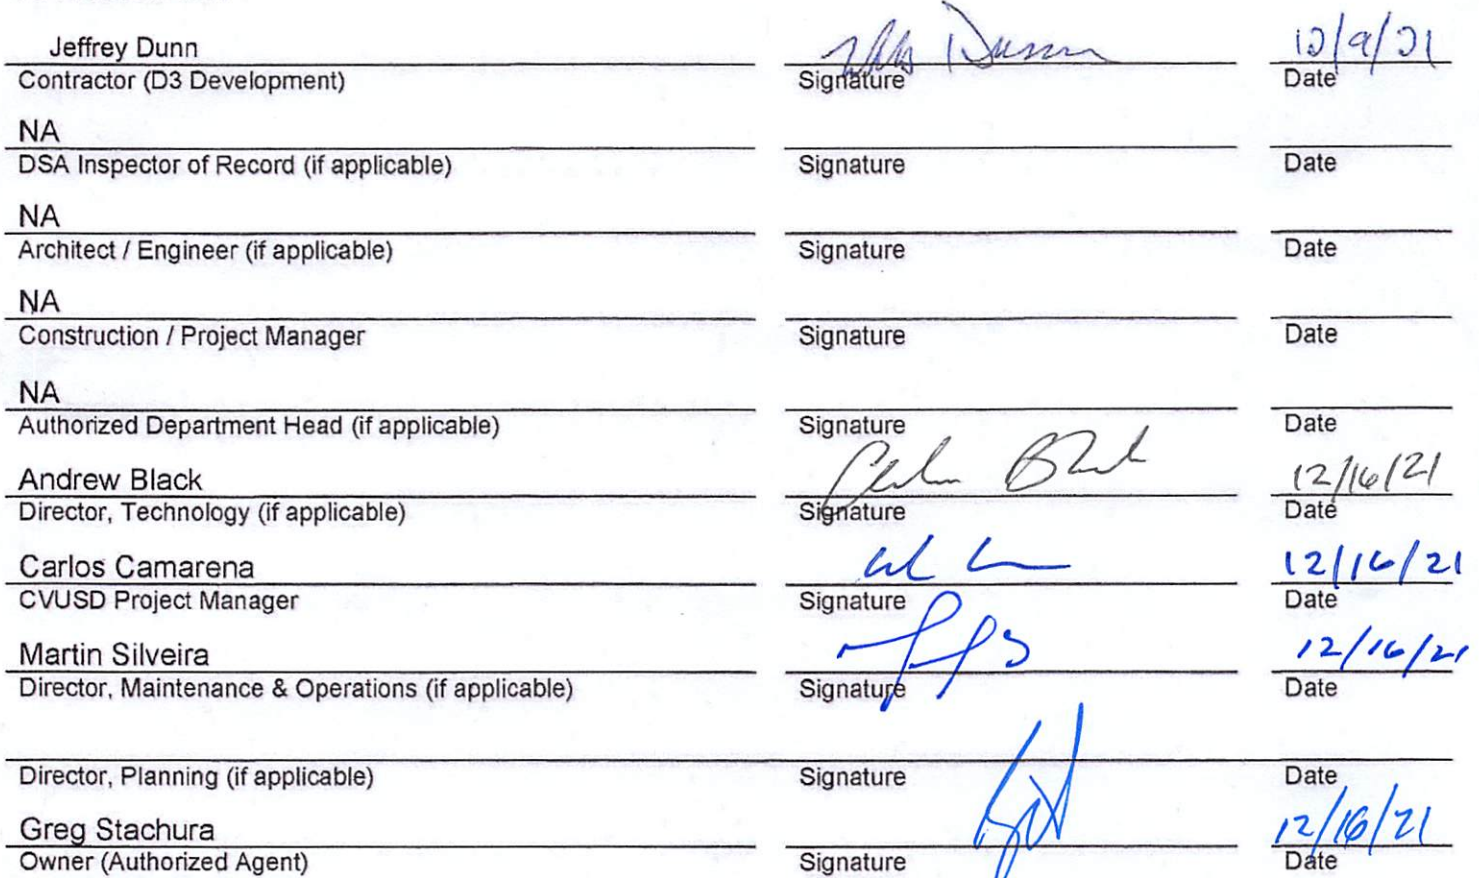 Jeffrey Dunn 12/9/21
Contractor (D3 Development) Signature Date
NA
DSA Inspector of Record (if applicable) Signature Date
NA
Architect / Engineer (if applicable) Signature Date
NA
Construction / Project Manager Signature Date
NA
Authorized Department Head (if applicable) Signature Date
Andrew Black 12/16/21
Director, Technology (if applicable) Signature Date
Carlos Camarena 12/16/21
CVUSD Project Manager Signature Date
Martin Silveira 12/16/21
Director, Maintenance & Operations (if applicable) Signature Date
Director, Planning (if applicable) Signature Date
Greg Stachura 12/16/21
Owner (Authorized Agent) Signature Date